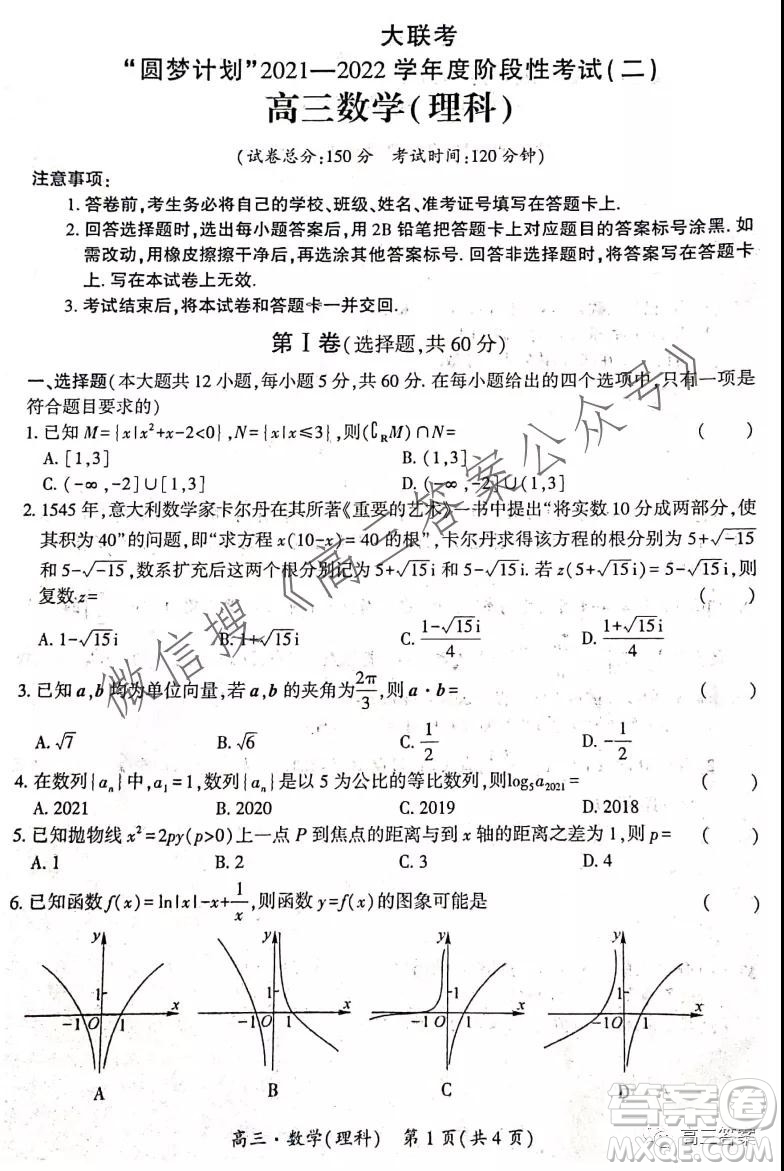 大联考
“圆梦计划”2021—2022学年度阶段性考试(二)
高三数学(理科)
(试卷总分:150分 考试时间:120分钟)
注意事项:
1.答卷前,考生务必将自己的学校、班级、姓名、准考证号填写在答题卡上.
2.回答选择题时,选出每小题答案后,用2B铅笔把答题卡上对应题目的答案标号涂黑.如
需改动,用橡皮擦擦干净后,再选涂其他答案标号.回答非选择题时,将答案写在答题卡
上.写在本试卷上无效.
3.考试结束后,将本试卷和答题卡一并交回.
第Ⅰ卷(选择题,共60分)
一、选择题(本大题共12小题,每小题5分,共60分.在每小题给出的四个选项中,只有一项是
符合题目要求的)
1.已知M={x|x²+x-2<0},N={x|x≤3},则(∁RM)∩N= ( )
A.[1,3] B.(1,3]
C.(-∞,-2]∪[1,3] D.(-∞,-2]∪(1,3]
2.1545年,意大利数学家卡尔丹在其所著《重要的艺术》一书中提出“将实数10分成两部分,使
其积为40”的问题,即“求方程x(10-x)=40的根”,卡尔丹求得该方程的根分别为5+√-15
和5-√-15,数系扩充后这两个根分别记为5+√15i和5-√15i.若z(5+√15i)=5-√15i,则
复数z= ( )
A.1-√15i B.1+√15i C.(1-√15i)/4 D.(1+√15i)/4
3.已知a,b均为单位向量,若a,b的夹角为2π/3,则a·b= ( )
A.√7 B.√6 C.1/2 D.-1/2
4.在数列{aₙ}中,a₁=1,数列{aₙ}是以5为公比的等比数列,则log₅a₂₀₂₁= ( )
A.2021 B.2020 C.2019 D.2018
5.已知抛物线x²=2py(p>0)上一点P到焦点的距离与到x轴的距离之差为1,则p= ( )
A.1 B.2 C.3 D.4
6.已知函数f(x)=ln|x|-x+1/x,则函数y=f(x)的图象可能是 ( )
y 1 -1 O 1 x
y 1 -1 O 1 x
y 1 -1 O 1 x
y 1 -1 O 1 x
A B C D
高三·数学(理科) 第1页(共4页)
微信搜《高三答案公众号》
答案圈
MXQE.COM
高三答案